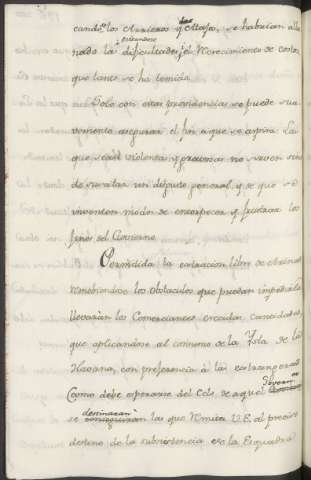 cando los Arrieros y Atajos, se habrian alla
nado la dificultades, y el Encarecimiento de costos
que tanto se ha temido.
Solo con estas providencias se puede sua
vemente asegurar el fin a que se aspira. Las
que sean violentas y precisas no sirven sino
de suscitar un disgusto general, y se que se
inventen modos de entorpecer y frustrar los
fines del Govierno.
Permitida la extraccion libre de Arinas
removiendose los obstaculos que puedan impedirla
llevaràn los Comerciantes crecidas cantidades,
que aplicandose al consumo de la Isla de la
Havana, con preferencia à las extrangeras
Como debe esperarse del Celo de aquel Govierno
se destinaràn las que remita V.E. al preciso
destino de la subsistencia de la Esquadra